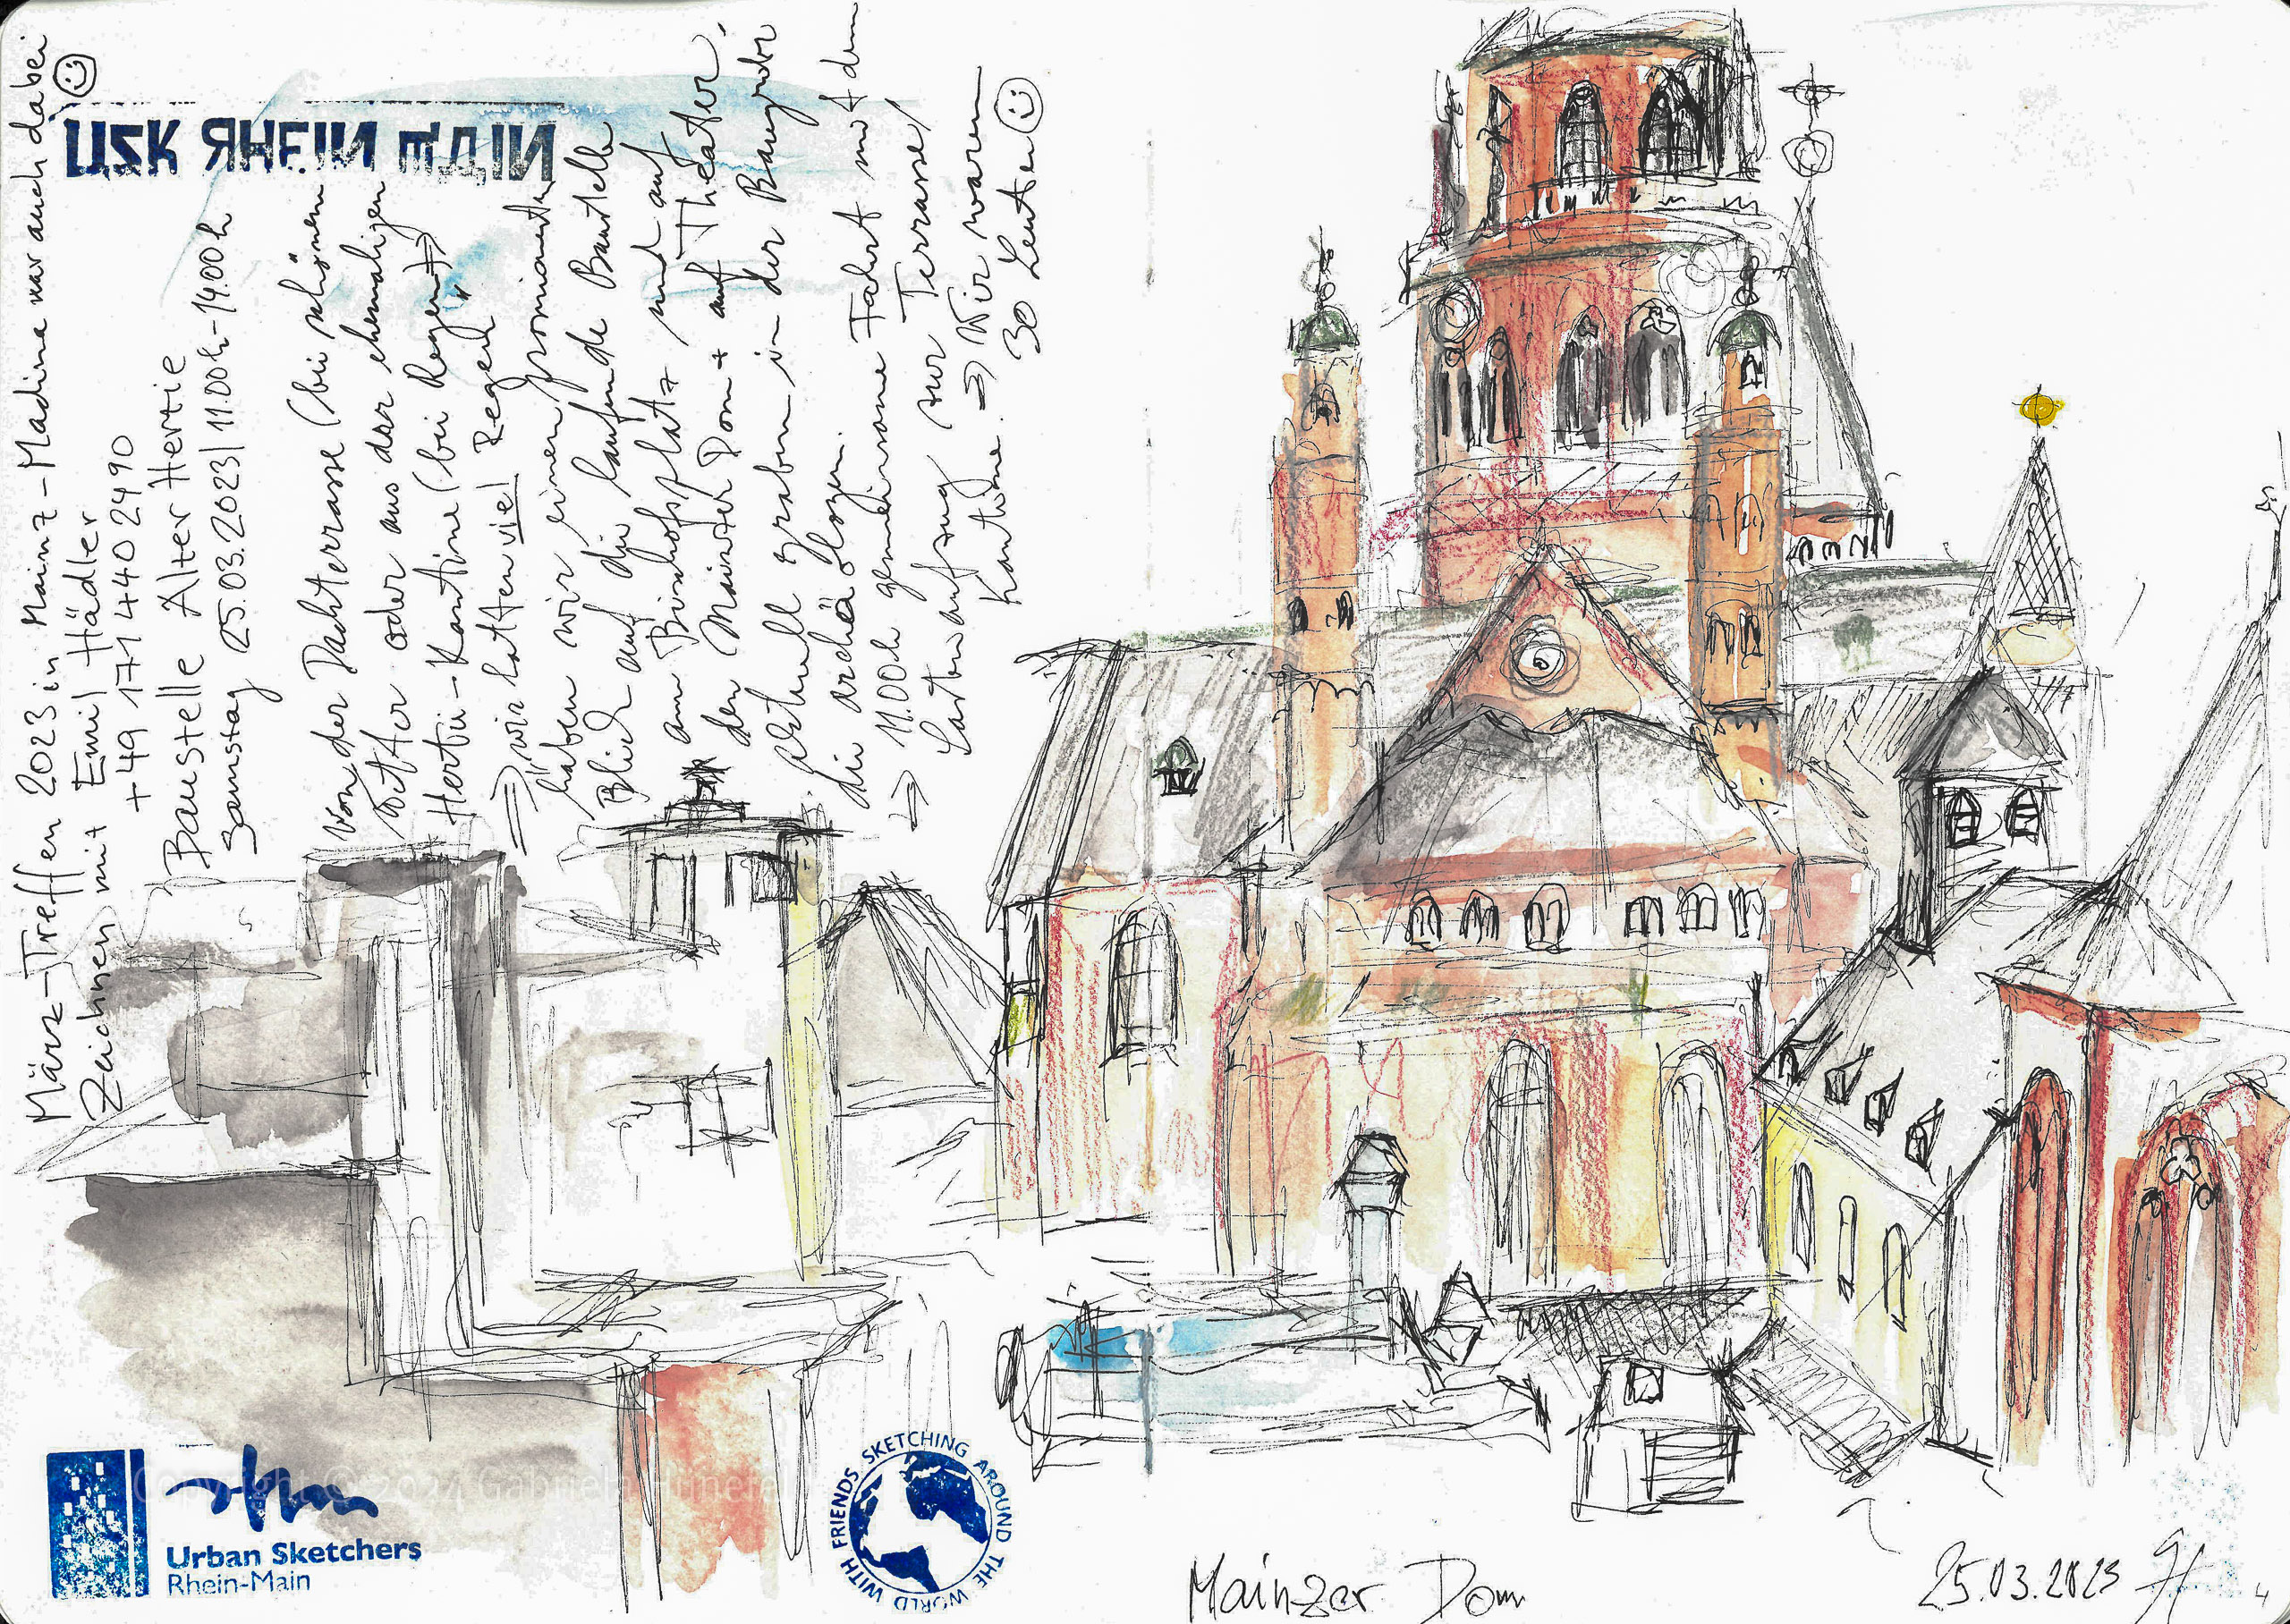 März-Treffen 2023 in Mainz - Madina war auch dabei
Zeichnen mit Emil Hädler
+49 171 440 2490
Baustelle Alter Hertie
Samstag 25.03.2023 | 11.00h-14.00h
Von der Dachterrasse (bei schönem
Wetter oder aus der ehemaligen
Hertie-Kantine (bei Regen) ⇒
⇒ wir hatten viel Regen"
haben wir einen prominenten
Blick auf die laufende Baustelle
am Bischofsplatz und auf
den Mainzer Dom + auf Theater.
Aktuell graben in der Baugrube
die Archäologen.
⇒ 11.00h gemeinsame Fahrt mit dem
Lastenaufzug zur Terrasse/
Kantine. ⇒ Wir waren
30 Leute
USK RHEIN MAIN
Urban Sketchers
Rhein-Main
WITH FRIENDS SKETCHING AROUND THE WORLD
Copyright © 2024 Gabriela
Mainzer Dom
25.03.2023
4